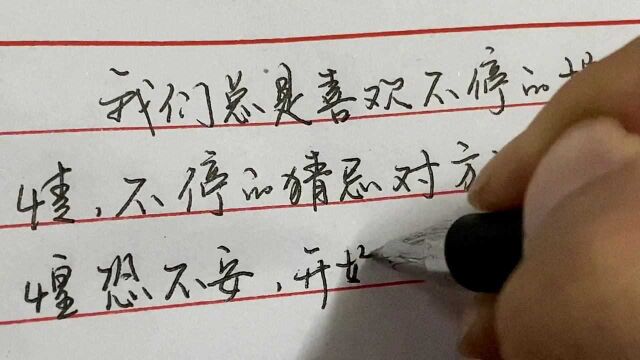 我们总是喜欢不停的
情，不停的猜忌对方
惶恐不安，开始